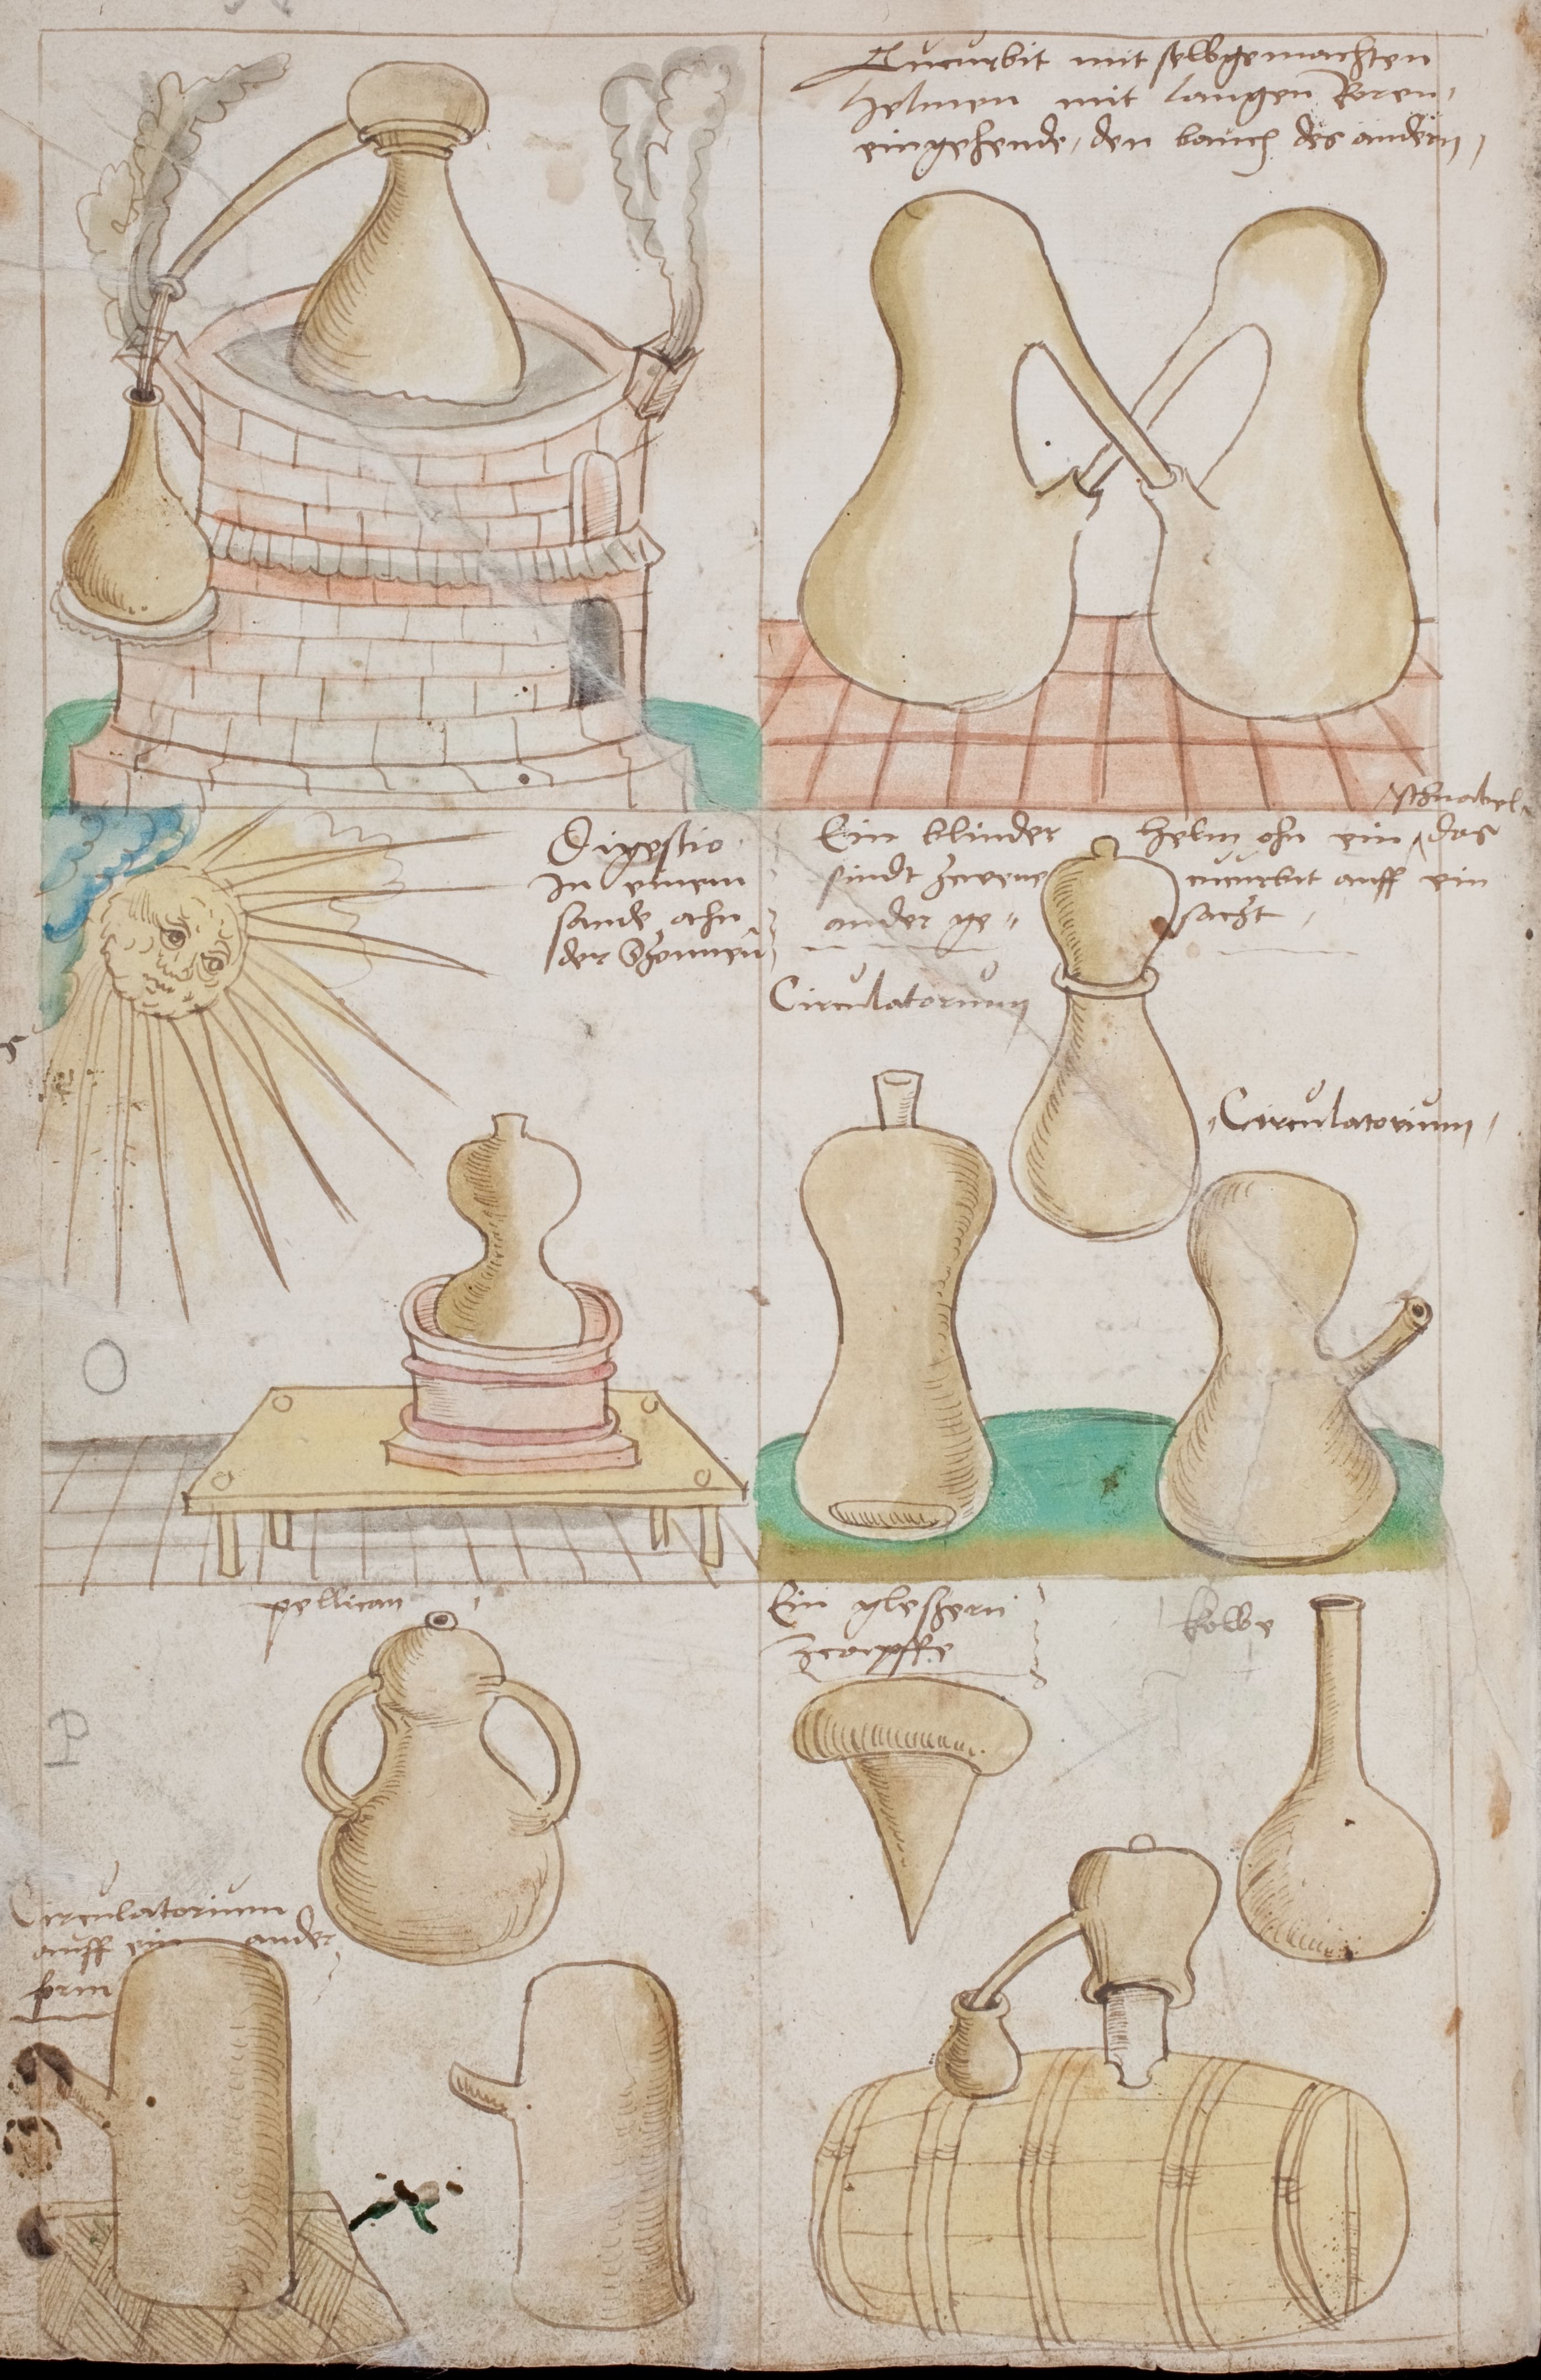 Cucurbit mit selbgemachten
helmen mit langen Roren,
eingehende, den bauch des andern,
Digestio
In einem
sande ahn
der Szonnen
schnabel
Ein blinder helm ohn ein das
sindt zwene cucurbit auff ein
ander ge" sactzt
Circulatorium
Circulatorium
pellican
Ein gleszern
kolbe
P
Circulatorium
auff ein ander
form